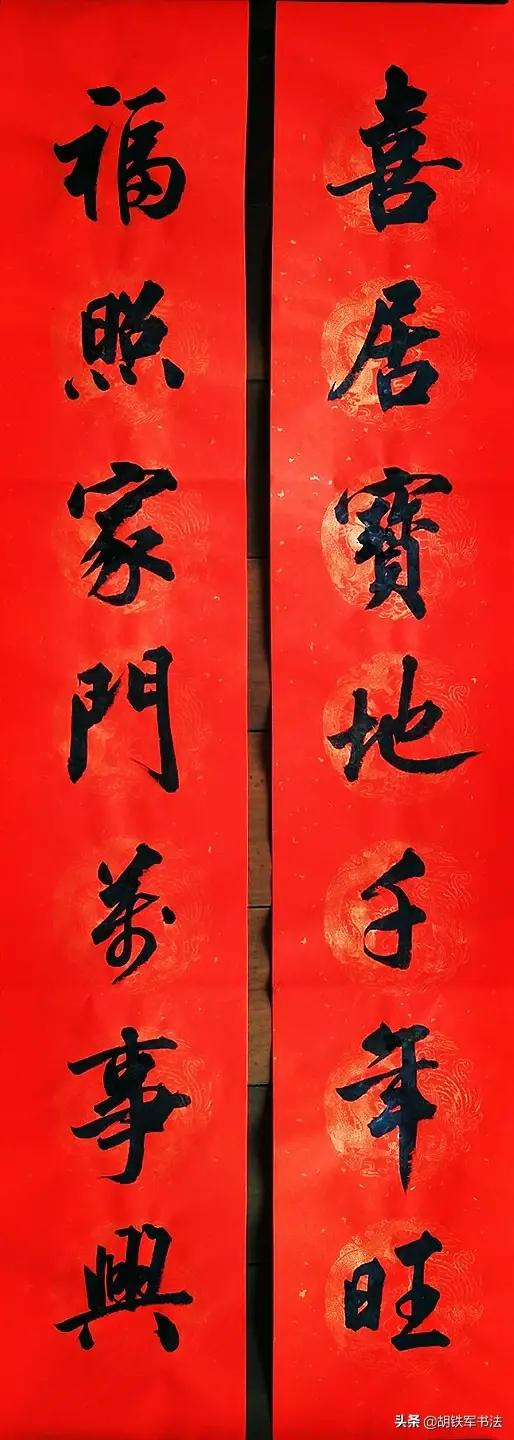 喜居寶地千年旺
福照家門萬事興
头条 @胡铁军书法